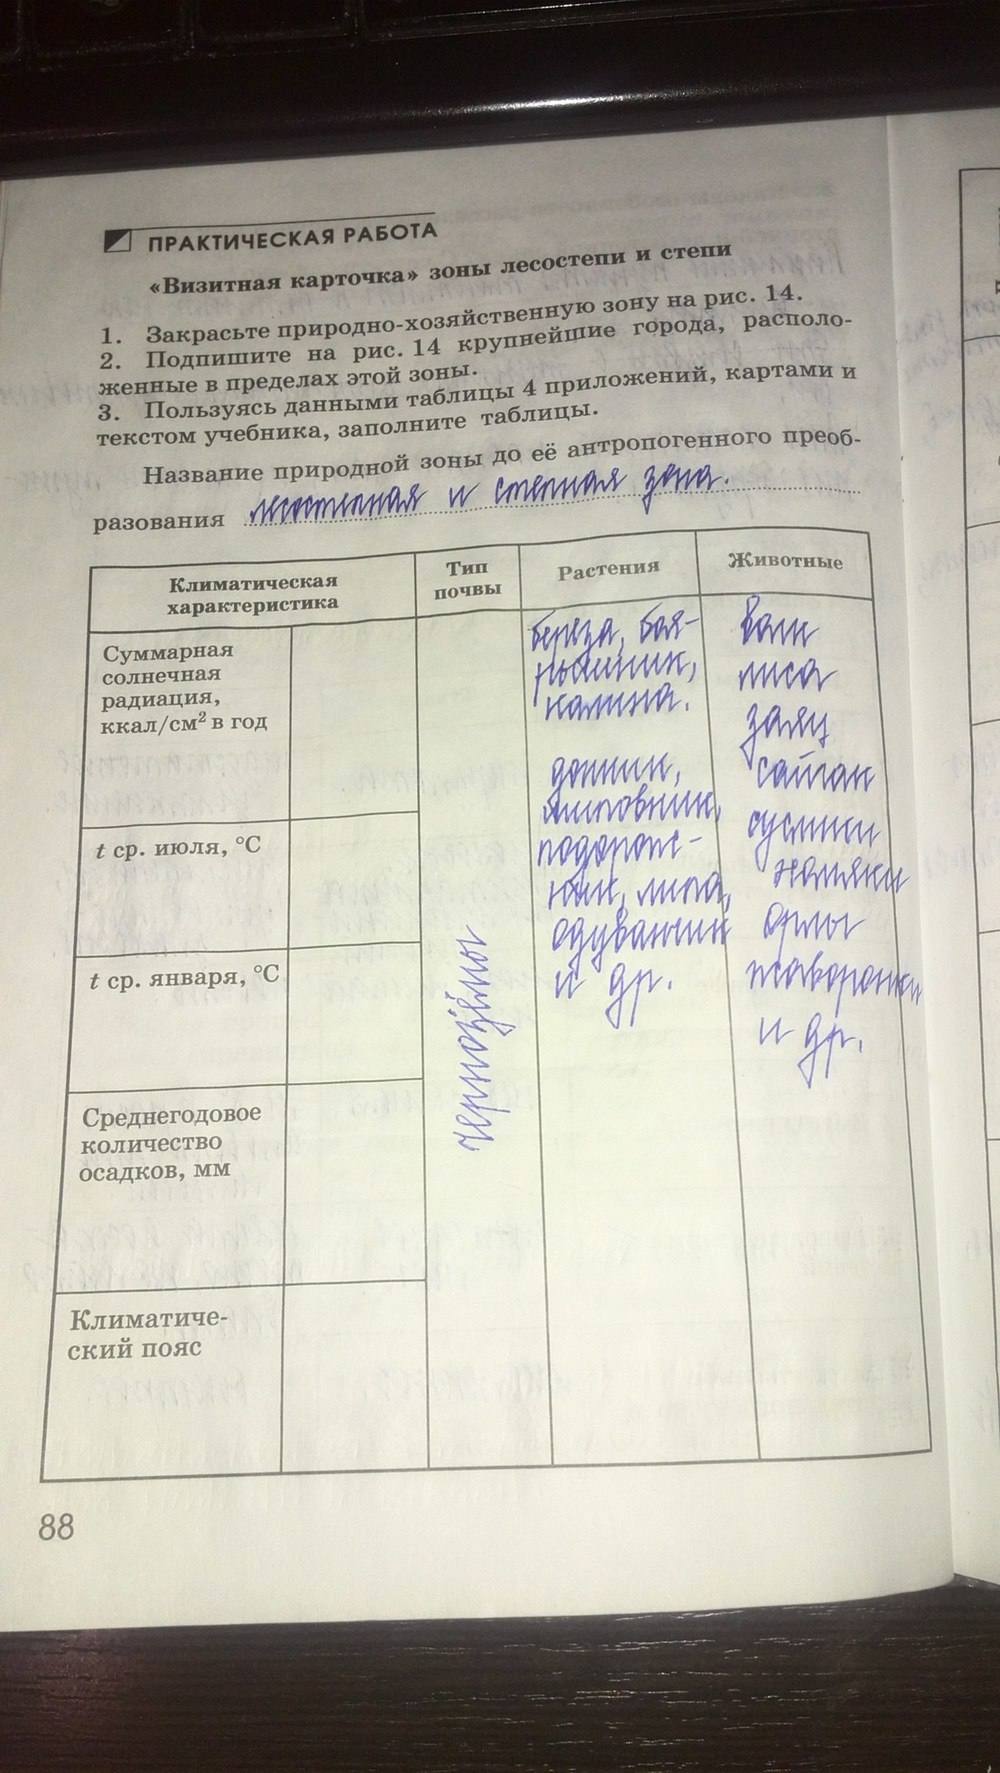 ПРАКТИЧЕСКАЯ РАБОТА
«Визитная карточка» зоны лесостепи и степи
1. Закрасьте природно-хозяйственную зону на рис. 14.
2. Подпишите на рис. 14 крупнейшие города, располо-
женные в пределах этой зоны.
3. Пользуясь данными таблицы 4 приложений, картами и
текстом учебника, заполните таблицы.
Название природной зоны до её антропогенного преоб-
разования лесостепная и степная зона.
Климатическая
характеристика
Тип
почвы
Растения
Животные
Суммарная
солнечная
радиация,
ккал/см² в год
t ср. июля, °С
t ср. января, °С
Среднегодовое
количество
осадков, мм
Климатиче-
ский пояс
чернозёмы
береза, боя-
рышник,
калина.
донник,
шиповник,
подорож-
ник, липа,
одуванчик
и др.
волк
лиса
заяц
сайгак
суслики
хомяки
орлы
жаворонки
и др.
88